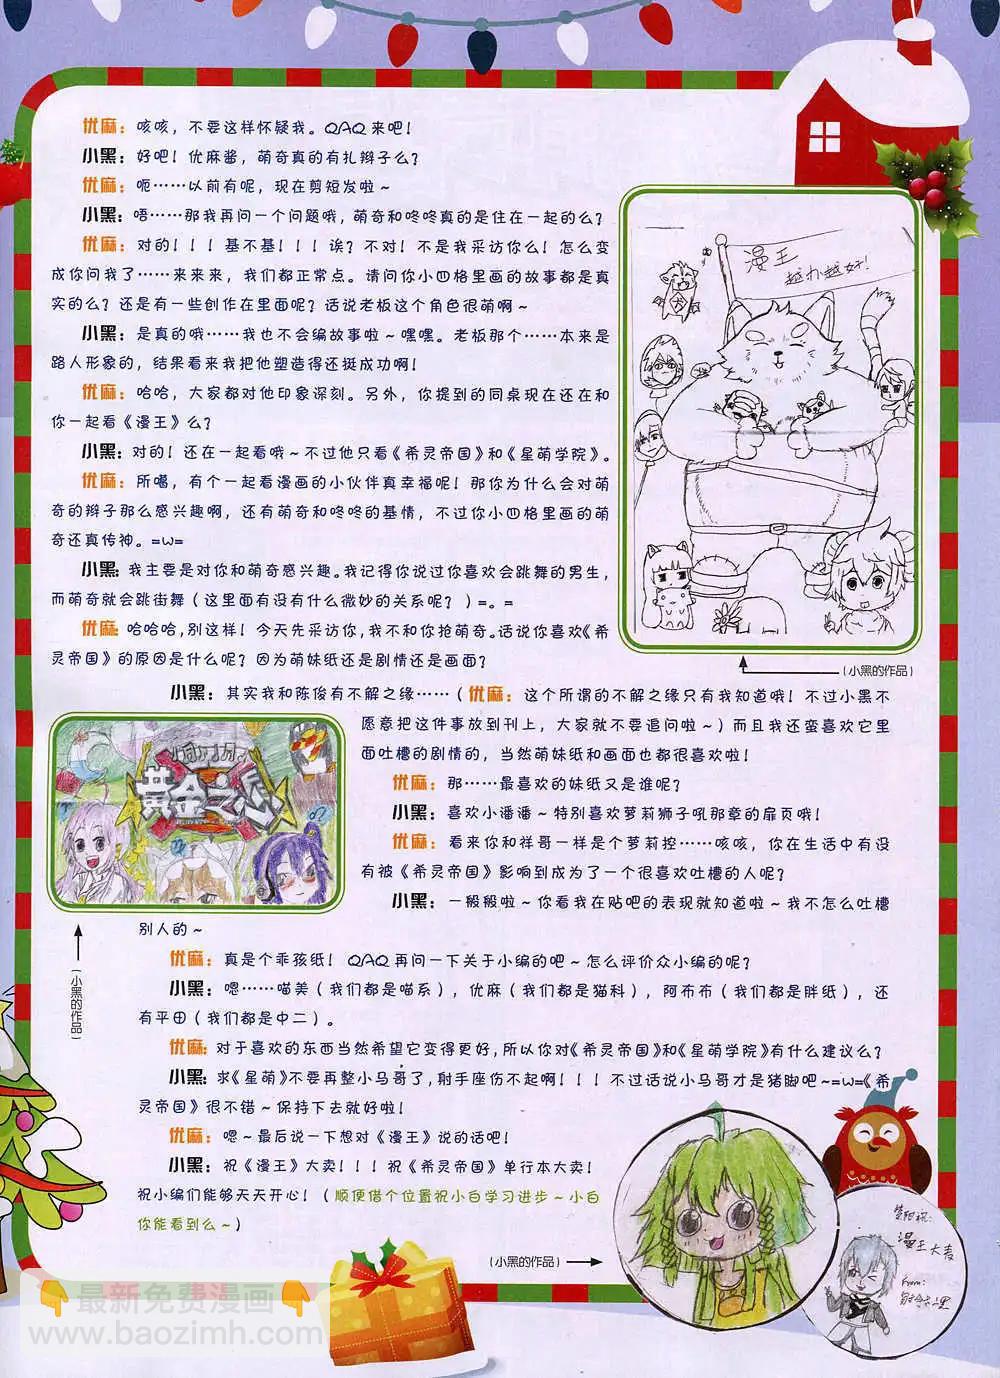 优麻：咳咳，不要这样怀疑我。QAQ 来吧！
小黑：好吧！优麻酱，萌奇真的有扎辫子么？
优麻：呃……以前有呢，现在剪短发啦~
小黑：唔……那我再问一个问题哦，萌奇和咚咚真的是住在一起的么？
优麻：对的！！！基不基！！！诶？不对！不是我采访你么！怎么变
成你问我了……来来来，我们都正常点。请问你小四格里画的故事都是真
实的么？还是有一些创作在里面呢？话说老板这个角色很萌啊~
小黑：是真的哦……我也不会编故事啦~嘿嘿。老板那个……本来是
路人形象的，结果看来我把他塑造得还挺成功啊！
优麻：哈哈，大家都对他印象深刻。另外，你提到的同桌现在还在和
你一起看《漫王》么？
小黑：对的！还在一起看哦~不过他只看《希灵帝国》和《星萌学院》。
优麻：所噶，有个一起看漫画的小伙伴真幸福呢！那你为什么会对萌
奇的辫子那么感兴趣啊，还有萌奇和咚咚的基情，不过你小四格里画的萌
奇还真传神。=ω=
小黑：我主要是对你和萌奇感兴趣。我记得你说过你喜欢会跳舞的男生，
而萌奇就会跳街舞（这里面有没有什么微妙的关系呢？）=。=
优麻：哈哈哈，别这样！今天先采访你，我不和你抢萌奇。话说你喜欢《希
灵帝国》的原因是什么呢？因为萌妹纸还是剧情还是画面？
小黑：其实我和陈俊有不解之缘……（优麻：这个所谓的不解之缘只有我知道哦！不过小黑不
愿意把这件事放到刊上，大家就不要追问啦~）而且我还蛮喜欢它里
面吐槽的剧情的，当然萌妹纸和画面也都很喜欢啦！
优麻：那……最喜欢的妹纸又是谁呢？
小黑：喜欢小潘潘~特别喜欢萝莉狮子吼那章的扉页哦！
优麻：看来你和祥哥一样是个萝莉控……咳咳，你在生活中有没
有被《希灵帝国》影响到成为了一个很喜欢吐槽的人呢？
小黑：一般般啦~你看我在贴吧的表现就知道啦~我不怎么吐槽
别人的~
优麻：真是个乖孩纸！QAQ 再问一下关于小编的吧~怎么评价众小编的呢？
小黑：嗯……喵美（我们都是喵系），优麻（我们都是猫科），阿布布（我们都是胖纸），还
有平田（我们都是中二）。
优麻：对于喜欢的东西当然希望它变得更好，所以你对《希灵帝国》和《星萌学院》有什么建议么？
小黑：求《星萌》不要再整小马哥了，射手座伤不起啊！！！不过话说小马哥才是猪脚吧~=ω=《希
灵帝国》很不错~保持下去就好啦！
优麻：嗯~最后说一下想对《漫王》说的话吧！
小黑：祝《漫王》大卖！！！祝《希灵帝国》单行本大卖！
祝小编们能够天天开心！（顺便借个位置祝小白学习进步~小白
你能看到么~）
漫王
越办越好！
（小黑的作品）
黄金之心
（小黑的作品）
（小黑的作品）
漫王大卖
From:
最新免费漫画
www.baozimh.com